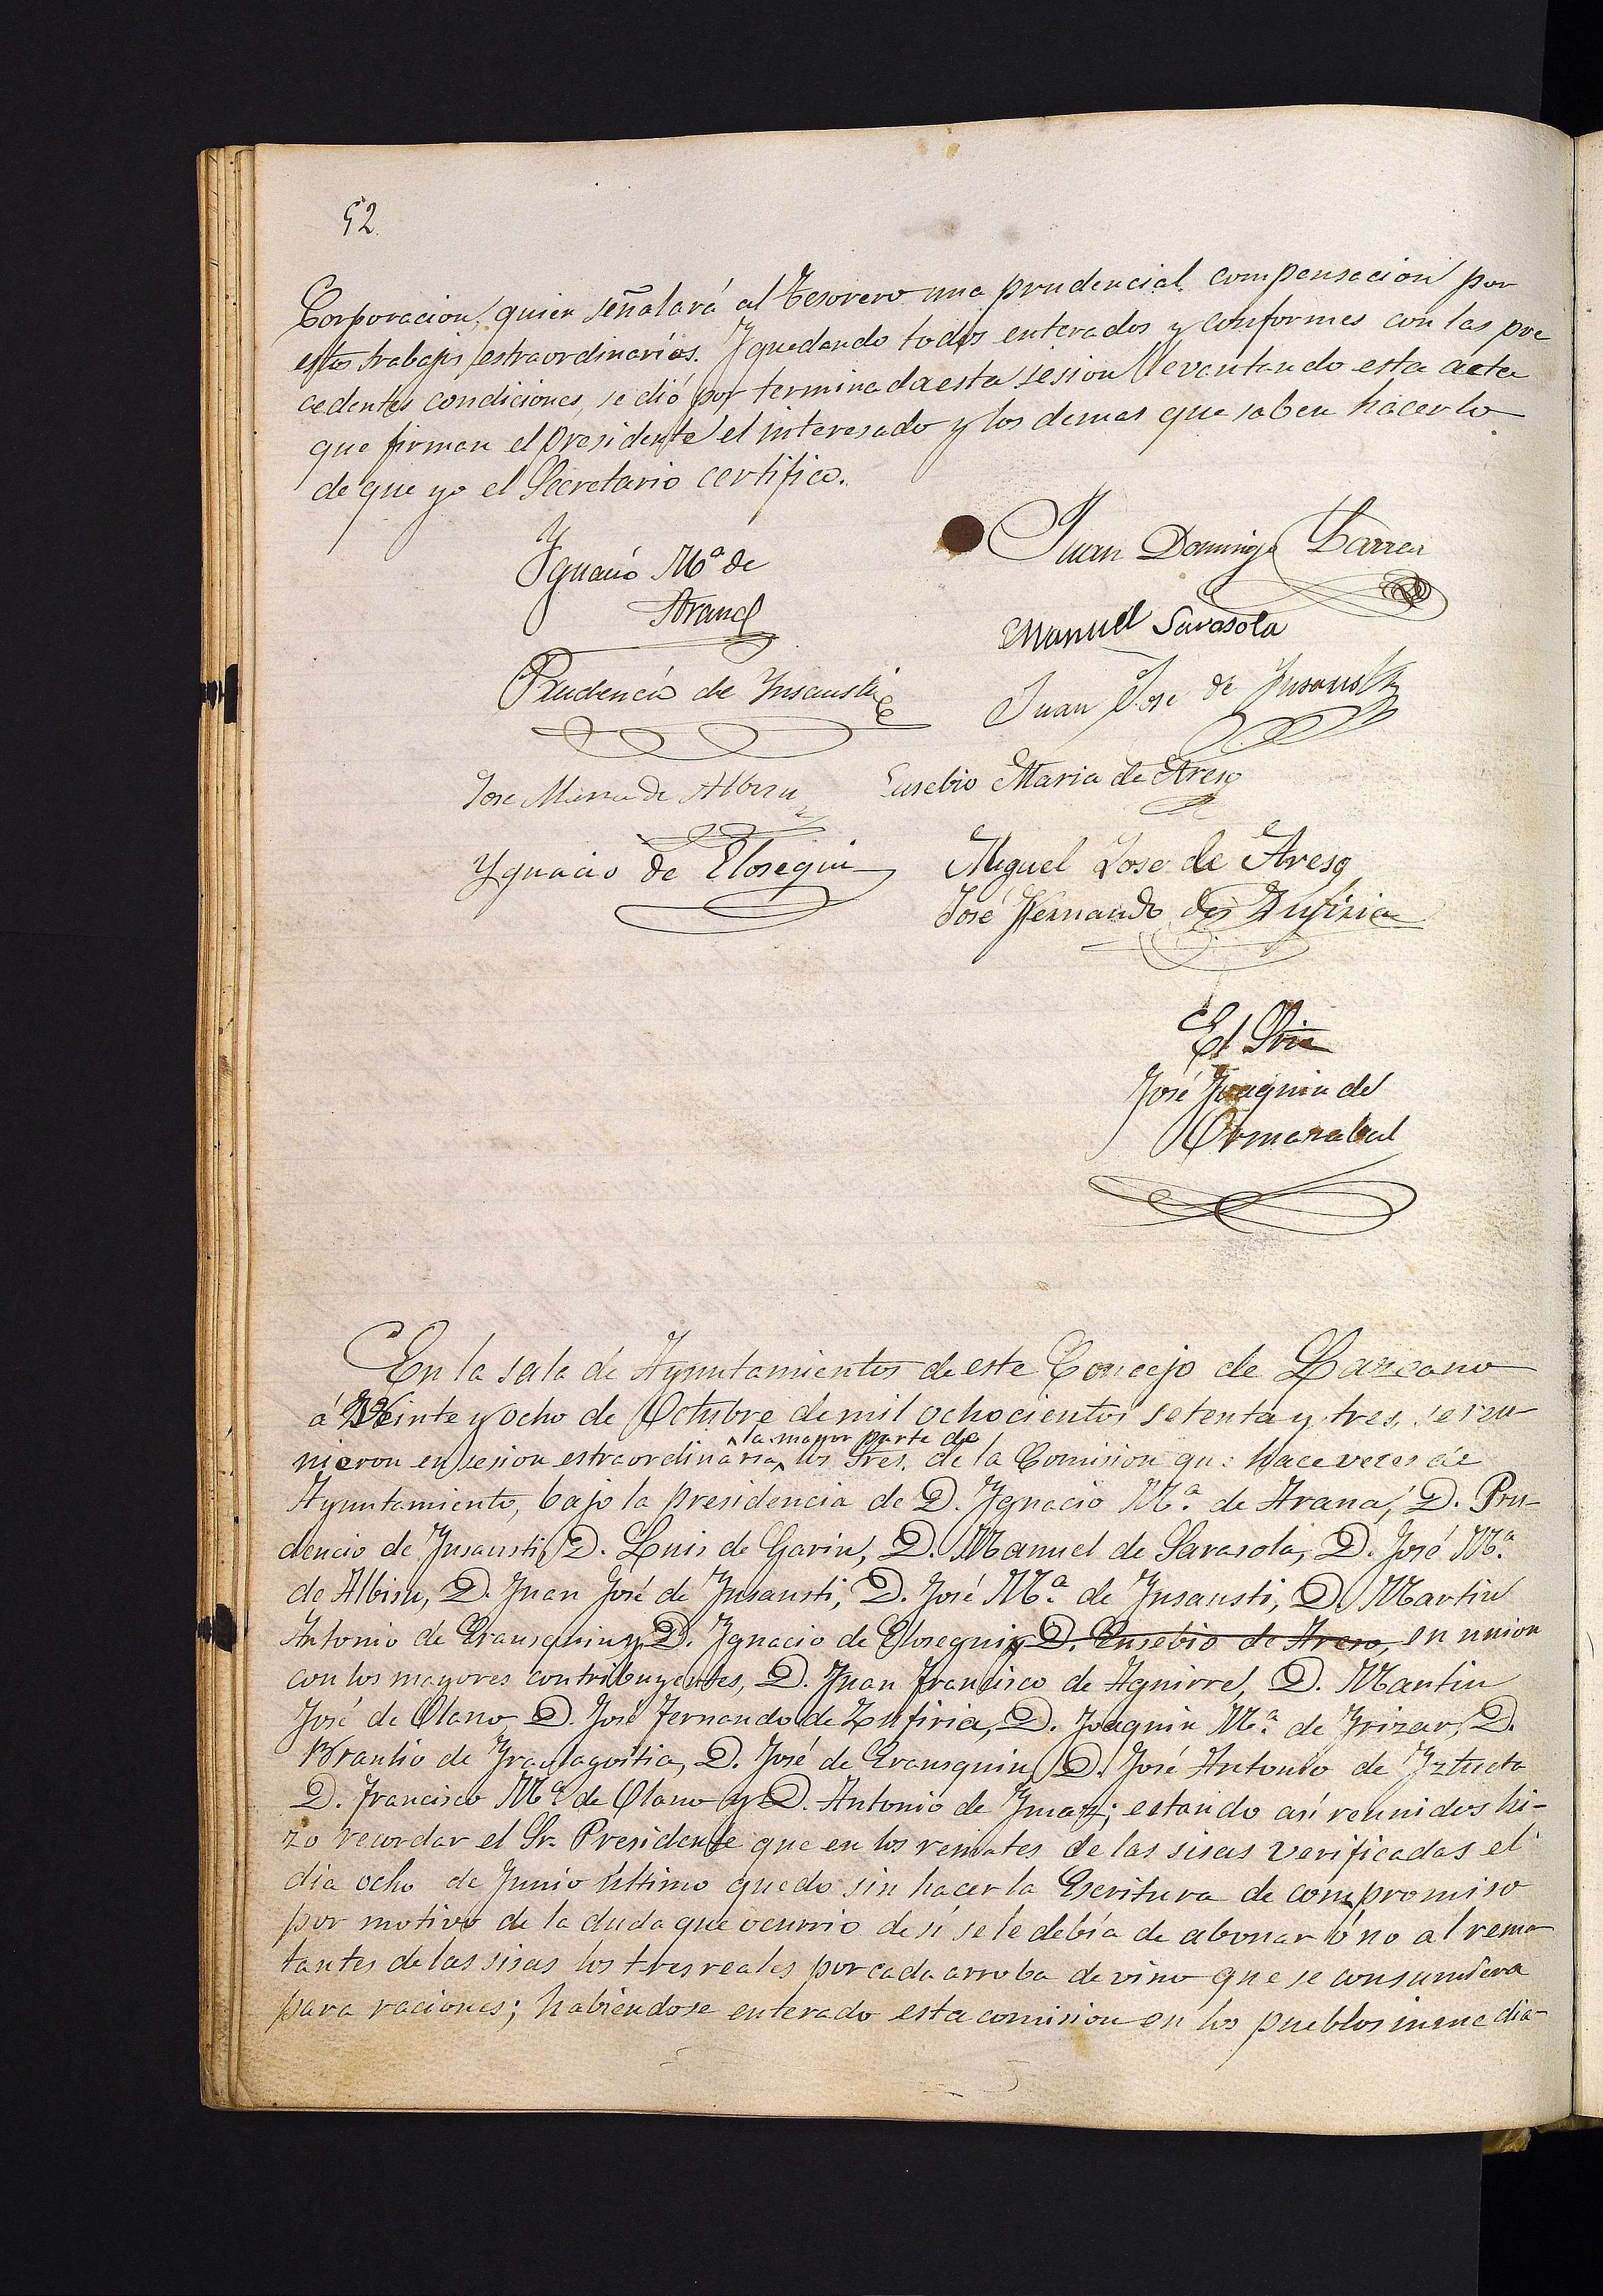 52
Corporacion, quien señalará al tesorero una prudencial compensacion por
estos trabajos estraordinarios. Y quedando todos enterados y conformes con las pre
cedentes condiciones, se dió por terminada esta sesion levantando esta acta
que firman el presidente el interesado y los demas que saben hacerlo
de que yo el Secretario certifico.
Ygnacio Mª de
Arana
Juan Domingo Larrea
Manuel Sarasola
Prudencio de Insausti
Juan Jose de Insausti
Jose Maria de Albisu
Eusebio Maria de Areso
Ygnacio de Elosegui
Miguel Jose de Areso
José Fernando de Zufiria
El Srio
José Joaquin de
Ormazabal
En la sala de Ayuntamientos de este Concejo de Lazcano
á Veinte y ocho de Octubre de mil ochocientos setenta y tres, se reu-
la mayor parte de
nieron en sesion estraordinaria los Sres. de la Comision que hace veces de
Ayuntamiento, bajo la presidencia de D. Ygnacio Mª. de Arana, D. Pru-
dencio de Insausti, D. Luis de Garin, D. Manuel de Sarasola, D. José Mª.
de Albisu, D. Juan José de Insausti, D. José Mª. de Insausti, D. Martin
Antonio de Erausquin y D. Ygnacio de Elosegui y D. Eusebio de Areso, en union
con los mayores contribuyentes, D. Juan Francisco de Aguirre, D. Martin
José de Olano D. José Fernando de Zufiria, D. Joaquin Mª. de Irizar, D.
Braulio de Iraolagoitia, D. José de Erausquin D. José Antonio de Iztueta
D. Francisco Mª de Olano y D. Antonio de Imaz; estando asi reunidos hi-
zo recordar el Sr. Presidente que en los remates de las sisas varificadas el
dia ocho de Junio último quedo sin hacer la Escritura de compromiso
por motivo de la duda que ocurrio de si se le debía de abonar ó no al rema
tantes de las sisas los tres reales por cada arroba de vino que se consumiera
para raciones; habiendose enterado esta comision en los pueblos inmedia-